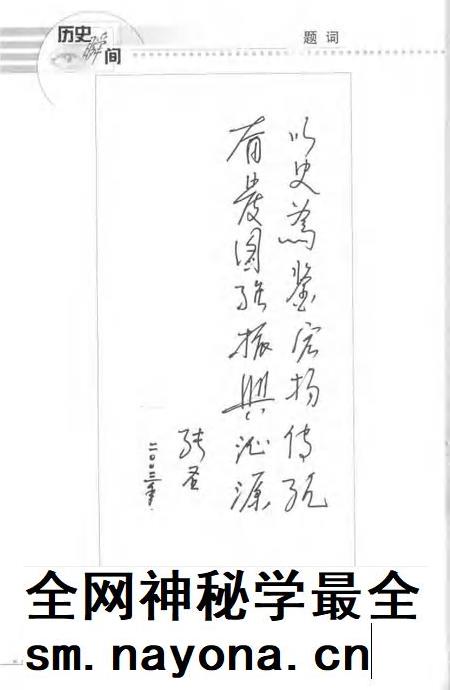 历史瞬间
题词
以史為鉴宏扬传统
奋發图强振興沁源
二〇〇三年
全网神秘学最全
sm.nayona.cn